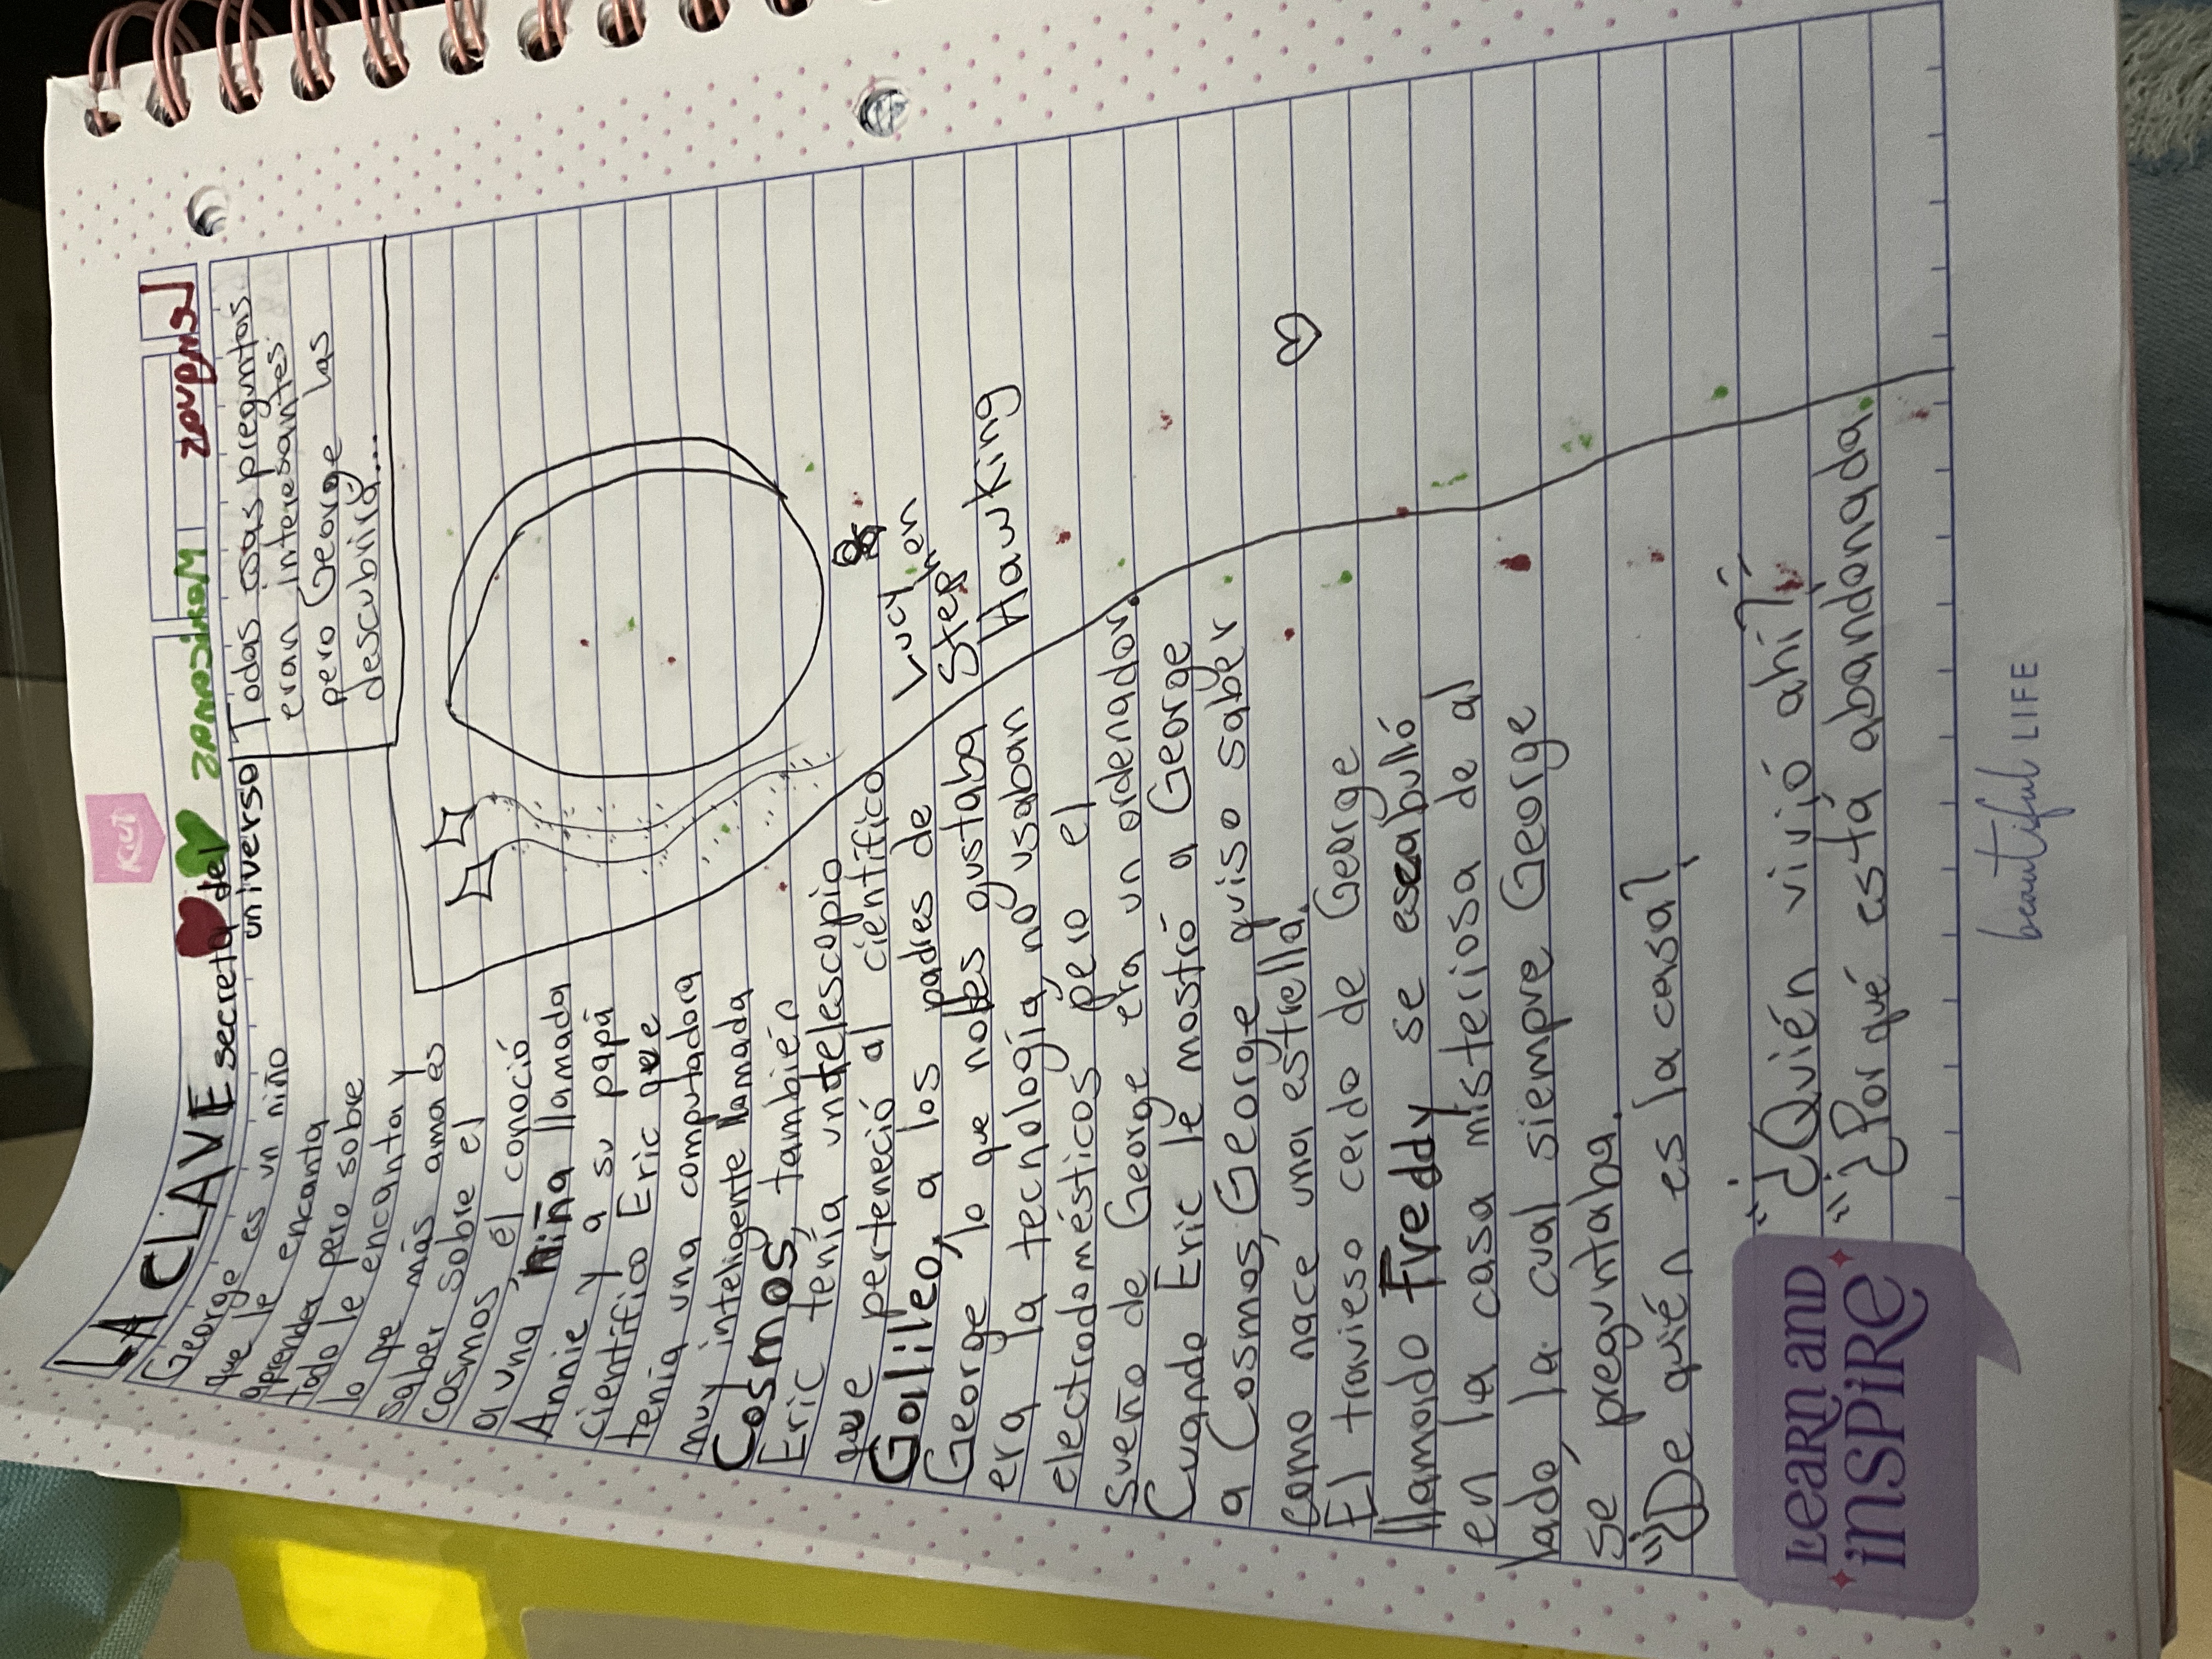 Kiut
LA CLAVE secreta del
universo
George es un niño
que le encanta
aprender pero sobre
todo le encanta y
lo que más ama es
saber sobre el
cosmos, él conoció
a una niña llamada
Annie y a su papá
científico Eric que
tenía una computadora
muy inteligente llamada
Cosmos, también
Eric tenía un telescopio
que perteneció al científico
Galileo, a los padres de
George lo que no les gustaba
era la tecnología, no usaban
electrodomésticos pero el
sueño de George era un ordenador.
Cuando Eric le mostró a George
a Cosmos, George quiso saber
como nace una estrella.
El travieso cerdo de George
llamado Freddy se escabulló
en la casa misteriosa de al
lado, la cual siempre George
se preguntaba.
"¿De quién es la casa?"
"¿Quién vivió ahí?"
"¿Por qué está abandonada?"
Todas esas preguntas
eran interesantes
pero George las
descubrirá...
Lucy
Stephen
Hawking
LEARN AND
INSPIRE
beautiful LIFE